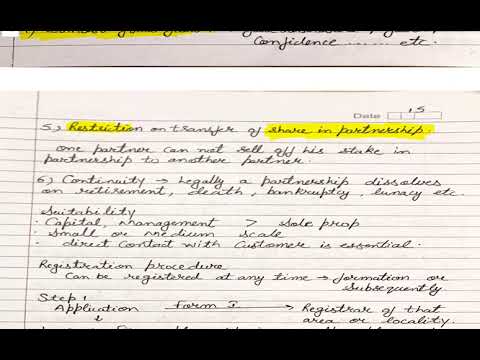 Confidence ...... etc.
Date 15
5, Restriction on transfer of share in partnership.
one partner can not sell off his stake in
partnership to another partner.
6) Continuity → Legally a partnership dissolves
on retirement, death, bankruptcy, lunacy etc.
Suitability
· Capital, Management > Sole prop
· Small or Medium scale
· direct Contact with Customer is essential.
Registration procedure
Can be registered at any time → formation or
Subsequently
Step 1
Application form I → Registrar of that
↓ area or locality.